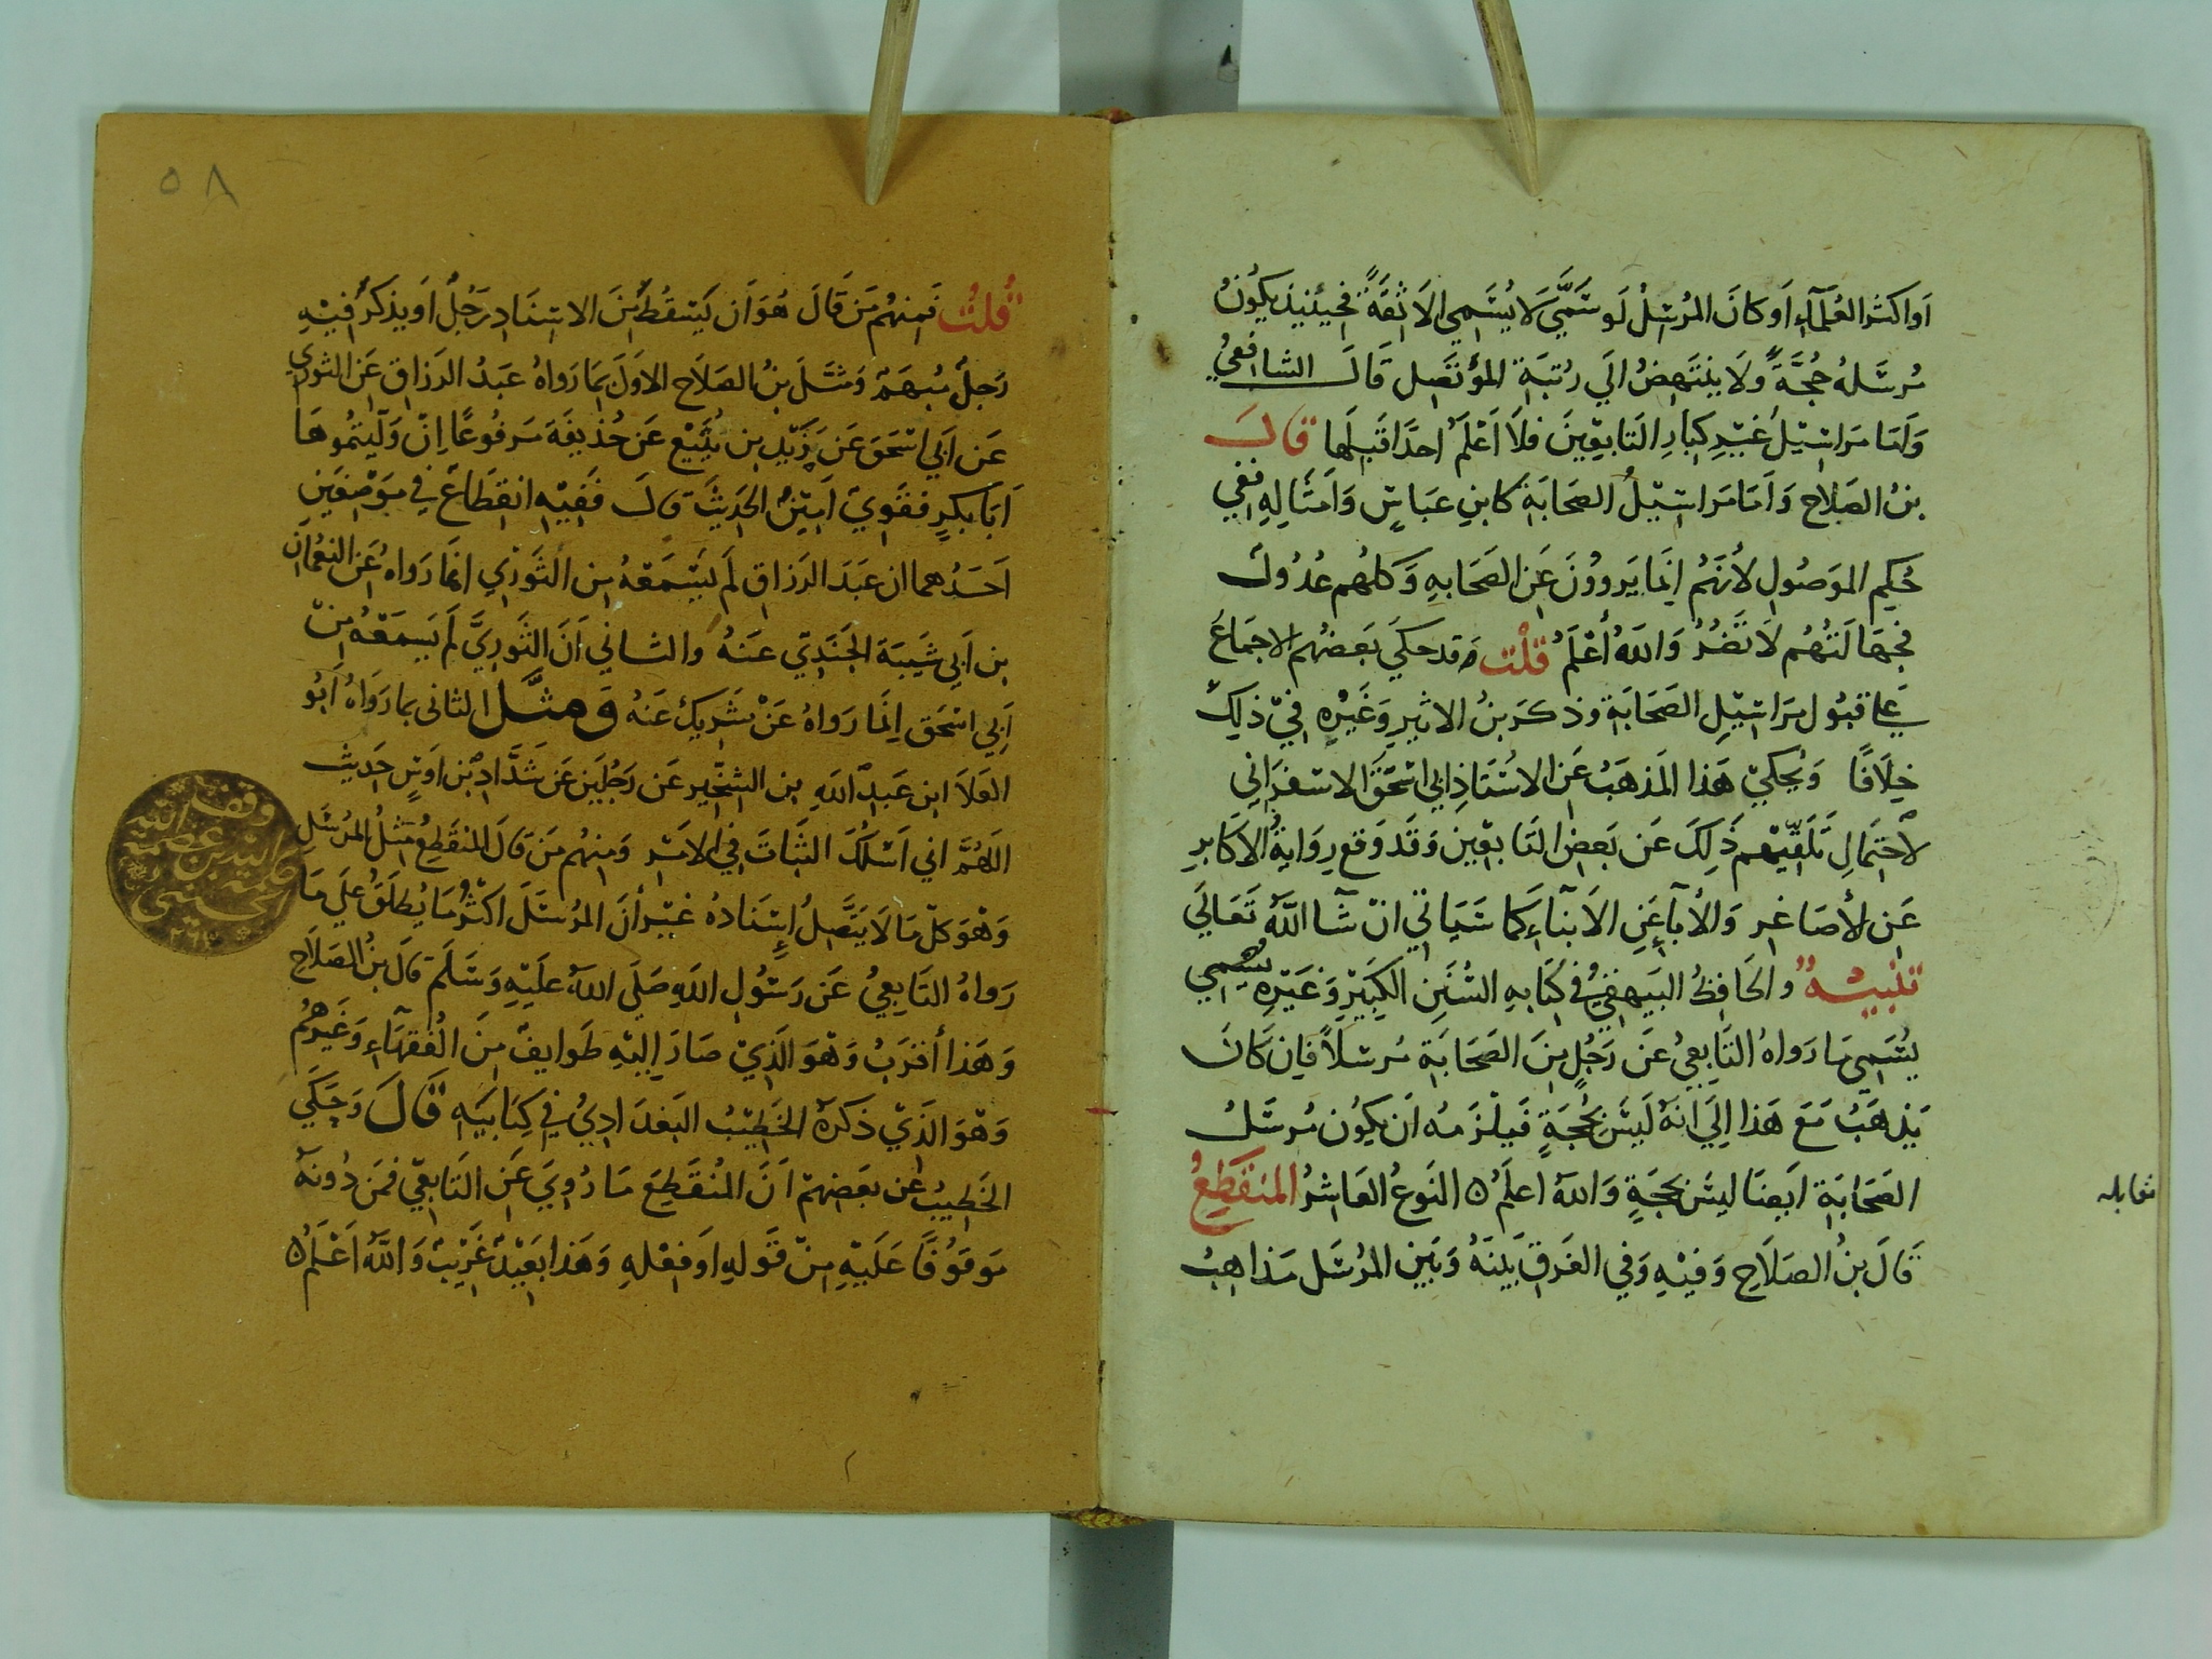 اَواكثر العُلَمَآءِ اَو كانَ المُرسِلُ لَو سَمَّيَ لَا يُسَمِي الاثِقَةً فحِينئيذ يكُونُ
مُرسَلهُ حُجَّةً وَلَا يَنتَهِضُ اِلَي رُتبَةِ المؤتَصِل قَالَ الشافعيُ
وَاَمَا مَراسِيْلُ غَيْرِ كِبَارِ التَابعِينَ فلَا اَعْلَمُ احدًا قَبلهَا قالَ
بنُ الصَلاح وَاَمَا مَراسِيْلُ الصَحَابَةِ كابنِ عبَاسٍ وَاَمثَالِهِ ففي
حُكِم الموَصُولِ لأنهَمُ اِنمَا يَروؤنَ عَن الصَحَابهِ وَكلهُم عُدُولٌ
فجهَالَتهُم لَا تَضُرُ وَاللّهُ أعْلَمُ قُلْت وقد حكيَ بَعضهُم الاجمَاعَ
عَلي قبُول مَرَاسِيْلِ الصَحَابَة وذكرَ بنُ الاثِيرِ وَغَيْرُهِ فِيْ ذلِكَ
خِلَافًا وَيُحكيَ هَذا المَذهَبُ عَنِ الاسُتَاذِ ابي اسْحَقَ الاسفرَانِي
لاحتِمَالِ تَلَقِيْهم ذَلِكَ عَن بَعَض التَابعِينَ وَقَد وَقع رِوَايةُ الاكَابرِ
عَنِ لأصَاغِر وَالأبآءِ عَنِ الاَبنَآءِ كمَا سَيَاتي انْ شآ اللّهُ تَعَالَي
تَنْبِيْهٌ والحَافِظُ البَيهقيُ في كتَابهِ السُنَنِ الكَبيِرِ وَغَيْرِه يُسَمِي
يُسَمِى مَا رَواهُ التَابِعيُ عَنَ رَجُلٍ مِنَ الصَحَابَةِ مُرسَلاً فاِن كَانَ
يَذهَبُ مَعَ هَذا اِليَ انَهُ لَيسَ بحُجَةٍ فَيلزَمهُ اَن يكُون مُرسَلُ
الصَحَابَة اَيضَا ليسَ بحجَةٍ وَاللّهُ اعلَمُ ه النَوعُ العَاشِرُ المنُقَطِعُ
قَالَ بنُ الصَلَاحِ وَفيْهِ وَفي الفَرقِ بَينَهُ وَبَيِن المُرسَل مَذاهِبُ
مقابله
٥٨
قُلتُ فَمِنهُم مَن قَالَ هُوَ اَن يَسْقُط مِنَ الاسنَادِ رَجُلٌ اَو يذكَرُ فيْهِ
رَجلٌ مُبهَمٌ وَمثَلَ بنُ الصَلَاح الاوَلَ بمَا رَواهُ عَبَدُ الرَزاق عَن الثوري
عَن اَبي اسْحَقَ عَن زَيْدِ بن يُثَيْع عَن حُذيفَةَ مَرفُوعًا اِنْ وَلَّيتُموهَا
اَبَا بكرٍ فقَويٌ اَمِيْنٌ الحَديثَ قالَ فَفِيْهِ انقِطَاعٌ في مَوْضِعَيْنِ
اَحَدُهما ان عَبَدَ الرَزاق لَم يَسْمَعْهُ مِن الثَوْريِ انمَا رَواهُ عَن النعُمَانِ
بن اَبي شَيبَة الجَنَدِيّ عَنَهُ والثاني اَنَ الثَوريَّ لَم يَسمَعْهُ مِنْ
اَبِي اسْحَق اِنمَا رَواهُ عَنْ شَرِيكِ عَنَهُ وَمثَل الثانى بما رَوَاهُ اَبُو
العَلَا ابن عَبدِ اللّهِ بن الشِخِّيرِ عَن رَجُلَين عَن شَدَّادِ بْن اَوَسٍ حَديث
اللّهُمَّ اني اَسْئلكَ الثَبَاتَ فِي الاَمْرِ وَمِنهُم مَنَ قَالَ المنقَطِعُ مِثلُ المرُسَلِ
وَهْوَ كلُ مَا لَا يَتَّصِلُ إِسْنَادُهُ غَيْر أنَ المرُسَلَ اكثرُ مَا يُطلَقُ عَلَي مَا
رَواهُ التَابِعيُ عَن رَسُولِ اللّهِ صَلَى اللّهُ علَيَهِ وَسَلَمَ قَالَ بنُ الصَلَاحِ
وَهَذا أقَرَبُ وَهْوَ الَذِيْ صَارَ اِليْهِ طَوايفُ مِنَ الْفُقَهآءِ وَغَيَرهُم
وَهْوَ الَذيْ ذَكرَهُ الخَطِيْبُ البَغدَادِيُ فِي كِتَابيَهِ قَالَ وَحَكَي
الخَطِيبُ عَن بَعَضِهمْ اَنَ المُنقَطِعَ مَا رُوِيَ عَنِ التَابعِيّ فمَن دُونَهُ
مَوقوُفًا عَلَيَهِ مِنْ قَولهِ اَو فِعْلهِ وَهَذا بَعِيْدٌ غَرَيْبٌ وَاللّهُ اَعْلَمُ ه
وقف
عبد الله بن عصمة الله
الحسيني